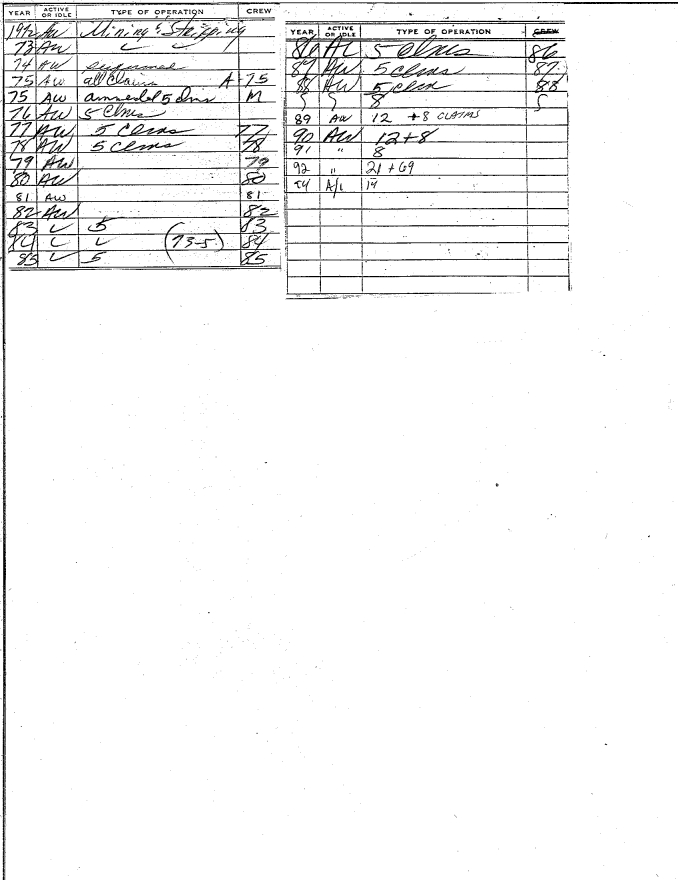 YEAR ACTIVE OR IDLE TYPE OF OPERATION CREW
1972 AW Mining & Stripping
73 AW ✓ ✓
74 AW
75 AW all Claims A 75
75 AW amended 5 clms M
76 AW 5 Clms
77 AW 5 Clms 77
78 AW 5 Clms 78
79 AW 79
80 AW 80
81 AW 81
82 AW 82
83 ✓ 5 83
84 ✓ ✓ (73-5) 84
85 ✓ 5 85
YEAR ACTIVE OR IDLE TYPE OF OPERATION CREW
86 5 Clms 86
87 AW 5 clms 87
88 AW 5 clm 88
8
89 AW 12 +8 CLAIMS
90 AW 12+8
91 " 8
92 " 21 + 69
A/L 14